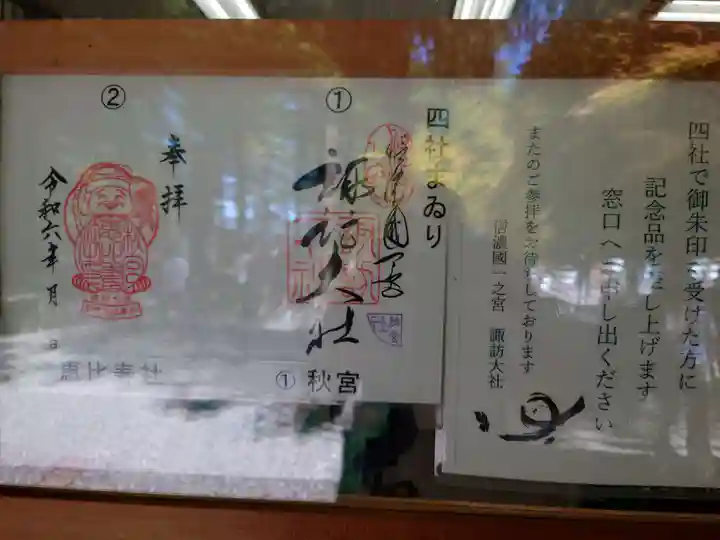 四社で御朱印を受けた方に
記念品を差し上げます
窓口へお申し出ください
またのご参拝をお待ちしております
信濃國一之宮 諏訪大社
四社まゐり
①
諏訪大社
① 秋宮
②
奉拝
令和六年 月 日
恵比寿社